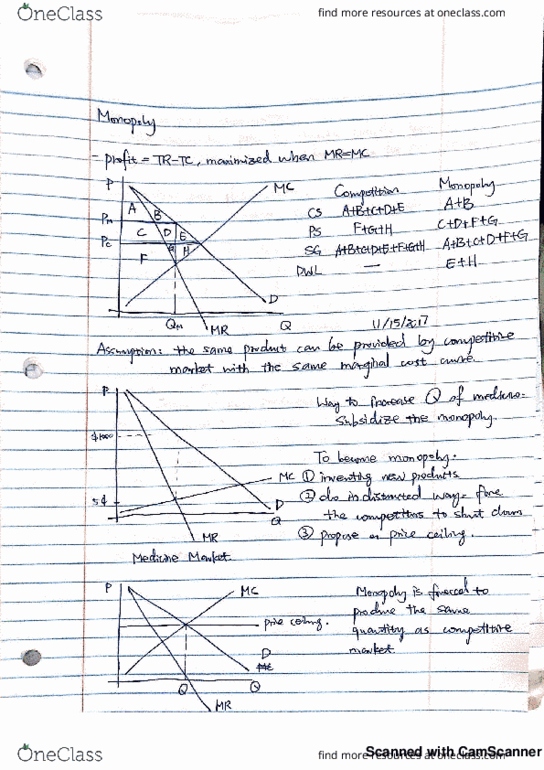 OneClass
find more resources at oneclass.com
Monopoly
- profit = TR-TC, maximized when MR=MC
P
MC
Competition
Monopoly
A
B
Pm
C
D
E
Pc
G
H
F
CS
A+B+C+D+E
A+B
PS
F+G+H
C+D+F+G
SG
A+B+C+D+E+F+G+H
A+B+C+D+F+G
DWL
—
E+H
D
QM
MR
Q
11/15/2017
Assumption: the same product can be provided by competitive
market with the same marginal cost curve.
P
Way to increase Q of medicine:
Subsidize the monopoly.
$1000
To become monopoly:
MC
① inventing new products
5¢
D
② do in distructed way: force
Q
the competitors to shut down
MR
③ propose a price ceiling.
Medicine Market
P
MC
Monopoly is forced to
produce the same
price ceiling.
quantity as competitive
D
market
MC
Q
Q
MR
OneClass
find more resources at oneclass.com
Scanned with CamScanner